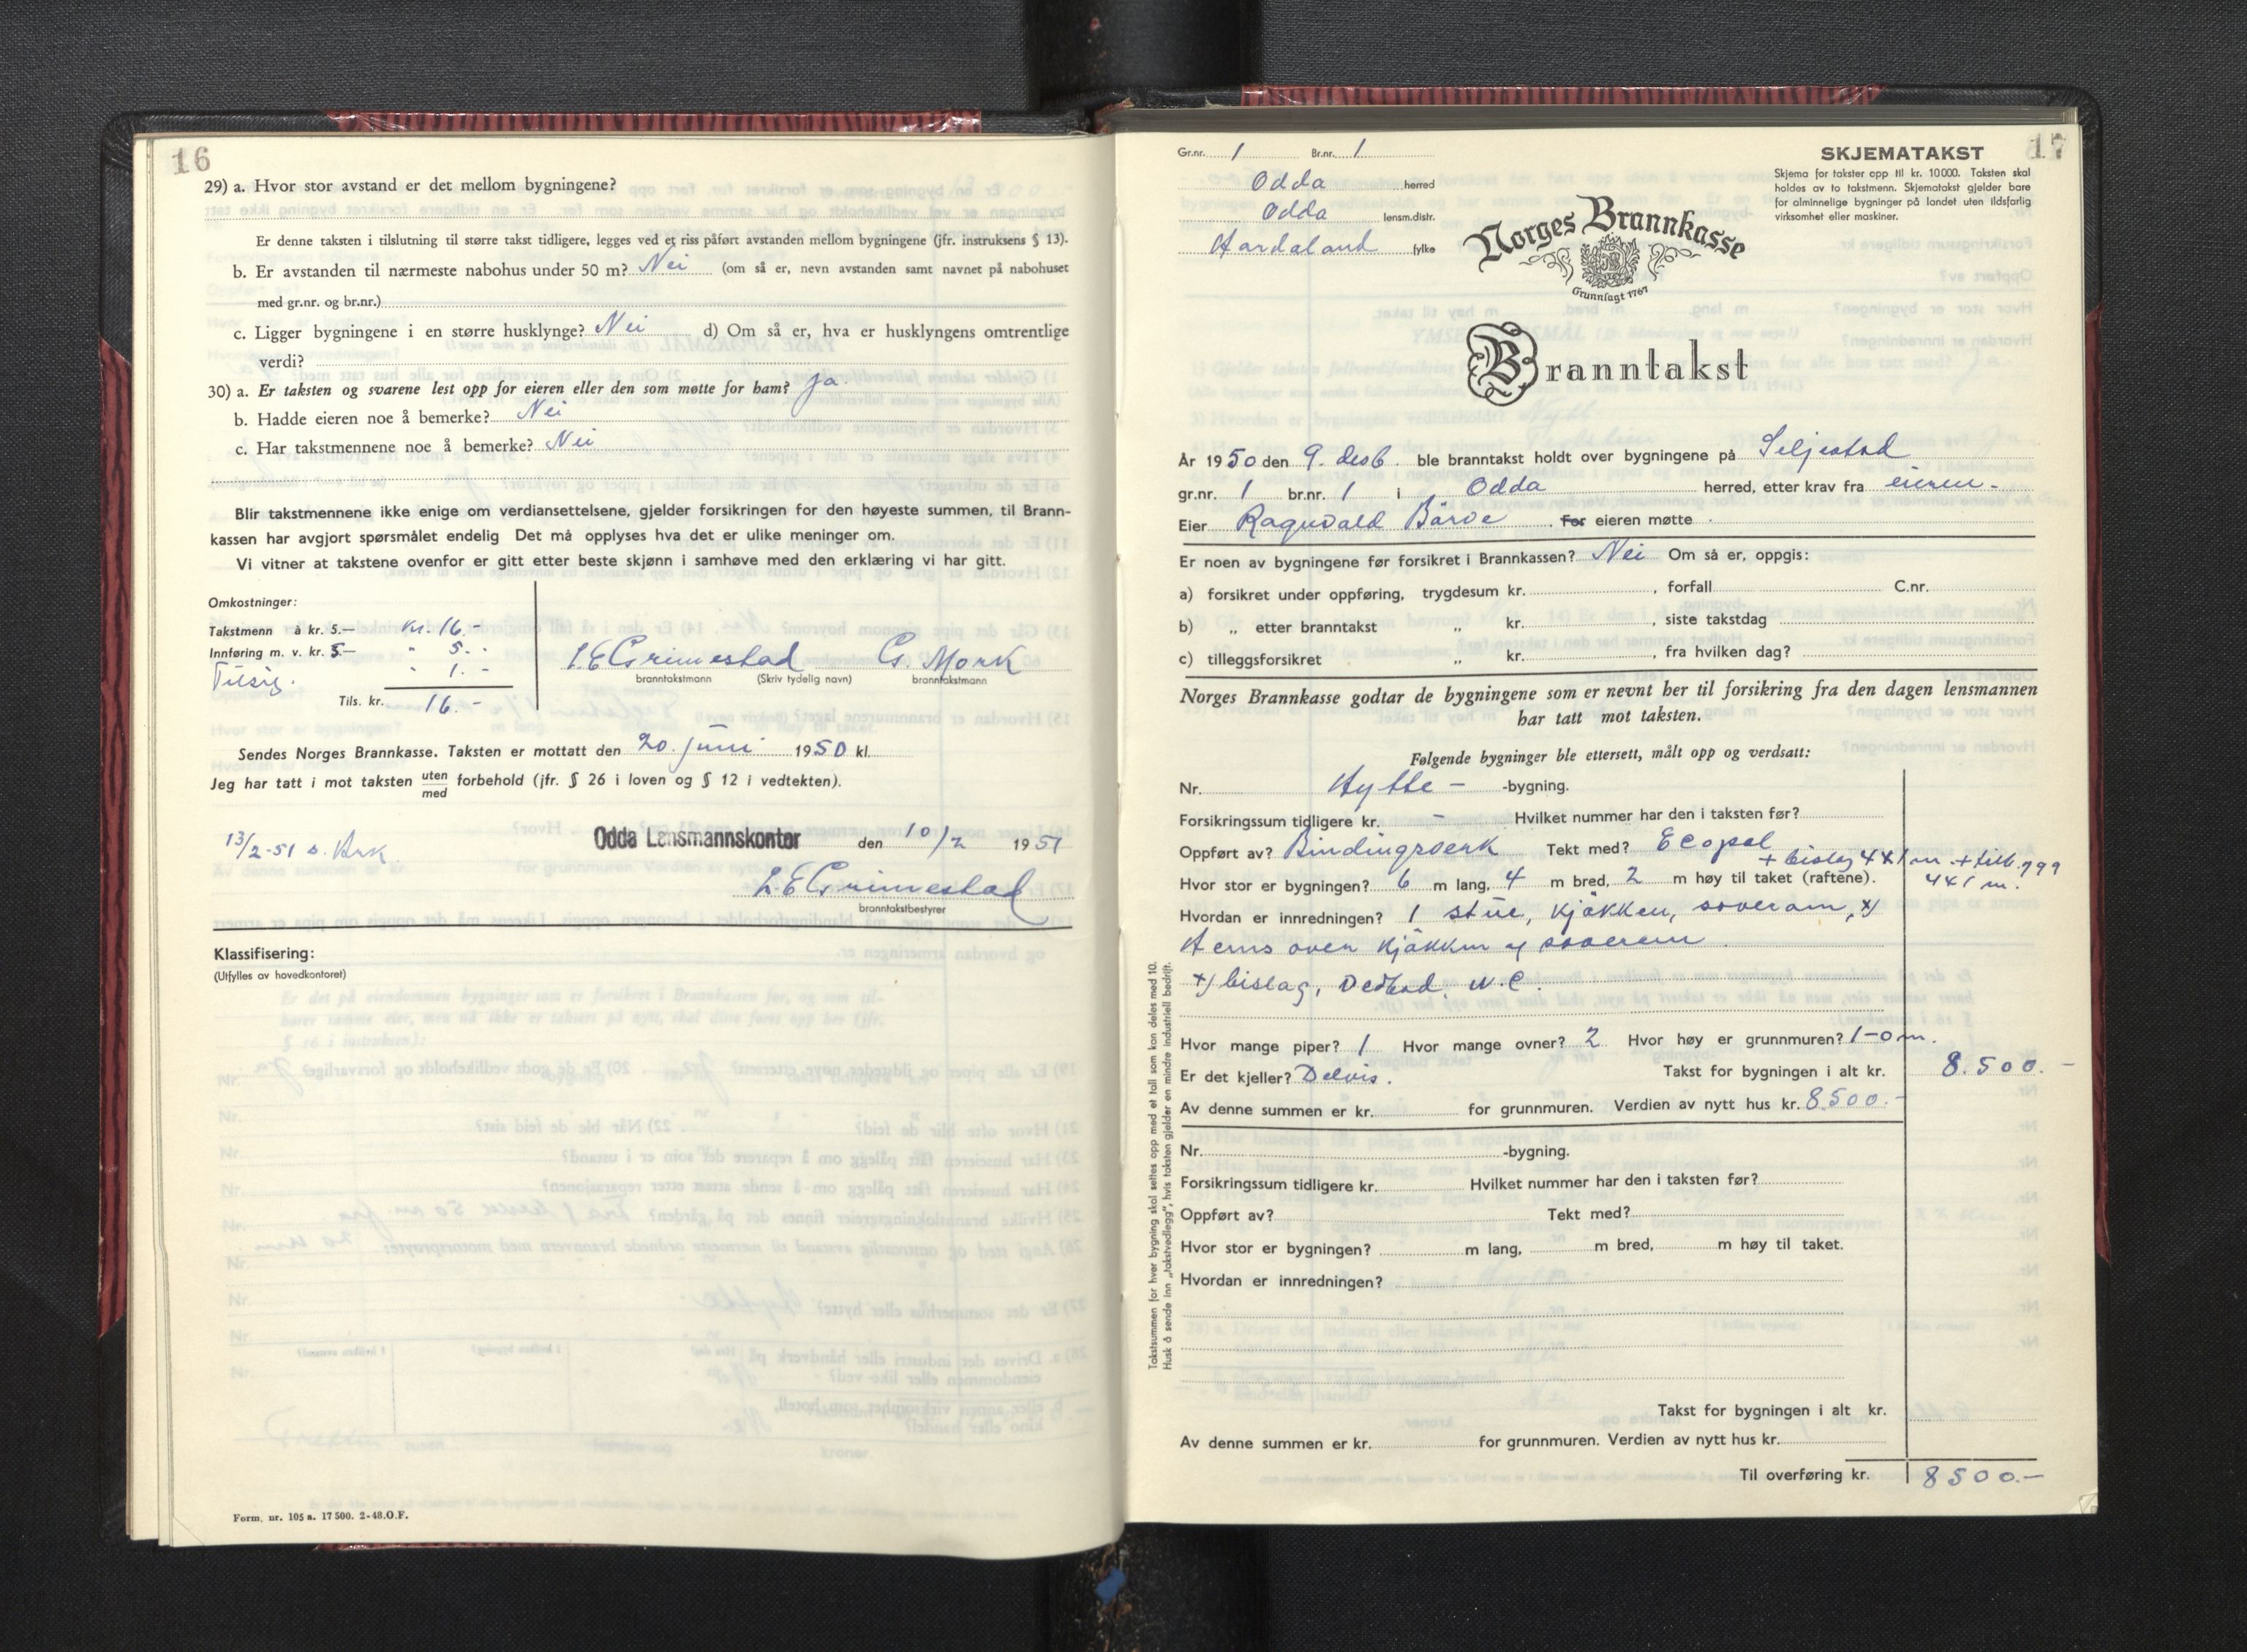 16
29) a. Hvor stor avstand er det mellom bygningene?
Er denne taksten i tilslutning til større takst tidligere, legges ved et riss påført avstanden mellom bygningene (jfr. instruksens § 13).
b. Er avstanden til nærmeste nabohus under 50 m? Nei (om så er, nevn avstanden samt navnet på nabohuset
med gr.nr. og br.nr.)
c. Ligger bygningene i en større husklynge? Nei d) Om så er, hva er husklyngens omtrentlige
verdi?
30) a. Er taksten og svarene lest opp for eieren eller den som møtte for ham? ja.
b. Hadde eieren noe å bemerke? Nei
c. Har takstmennene noe å bemerke? Nei
Blir takstmennene ikke enige om verdiansettelsene, gjelder forsikringen for den høyeste summen, til Brann-
kassen har avgjort spørsmålet endelig Det må opplyses hva det er ulike meninger om.
Vi vitner at takstene ovenfor er gitt etter beste skjønn i samhøve med den erklæring vi har gitt.
Omkostninger:
Takstmenn à kr. 5.— kr. 16.-
Innføring m. v. kr. 5.— " 5.-
Tilsig. " 1.-
Tils. kr. 16.-
L E Grimestad G. Mork
branntakstmann (Skriv tydelig navn) branntakstmann
Sendes Norges Brannkasse. Taksten er mottatt den 20. juni 1950 kl.
Jeg har tatt i mot taksten uten med forbehold (jfr. § 26 i loven og § 12 i vedtekten).
13/2-51 s. Brk.
Odda Lensmannskontor den 10/2 1951
L. E Grimestad
branntakstbestyrer
Klassifisering:
(Utfylles av hovedkontoret)
Form. nr. 105 a. 17 500. 2-48. O.F.
17
Gr.nr. 1 Br.nr. 1
Odda herred
Odda lensm.distr.
Hordaland fylke
SKJEMATAKST
Skjema for takster opp til kr. 10000. Taksten skal
holdes av to takstmenn. Skjematakst gjelder bare
for alminnelige bygninger på landet uten ildsfarlig
virksomhet eller maskiner.
Norges Brannkasse
Grunnlagt 1767
Branntakst
År 1950 den 9. desb. ble branntakst holdt over bygningene på Seljestad
gr.nr. 1 br.nr. 1 i Odda herred, etter krav fra eieren -
Eier Ragnvald Børve. For eieren møtte
Er noen av bygningene før forsikret i Brannkassen? Nei Om så er, oppgis:
a) forsikret under oppføring, trygdesum kr. , forfall C.nr.
b) „ etter branntakst „ kr. , siste takstdag
c) tilleggsforsikret „ kr. , fra hvilken dag?
Norges Brannkasse godtar de bygningene som er nevnt her til forsikring fra den dagen lensmannen
har tatt mot taksten.
Følgende bygninger ble ettersett, målt opp og verdsatt:
Nr. Hytte - -bygning.
Forsikringssum tidligere kr. - Hvilket nummer har den i taksten før?
Oppført av? Bindingsverk Tekt med? Ecopal
+ bislag 4x1 m + tilb.
Hvor stor er bygningen? 6 m lang, 4 m bred, 2 m høy til taket (raftene). 4x1 m.
Hvordan er innredningen? 1 stue, kjøkken, soverom, x)
Hems over kjøkken og soverom.
x) bislag, vedbod, W.C.
Hvor mange piper? 1 Hvor mange ovner? 2 Hvor høy er grunnmuren? 1-0 m.
Er det kjeller? Delvis. Takst for bygningen i alt kr. 8.500.-
Av denne summen er kr. for grunnmuren. Verdien av nytt hus kr. 8500.-
Nr. -bygning.
Forsikringssum tidligere kr. Hvilket nummer har den i taksten før?
Oppført av? Tekt med?
Hvor stor er bygningen? m lang, m bred, m høy til taket.
Hvordan er innredningen?
Takst for bygningen i alt kr.
Av denne summen er kr. for grunnmuren. Verdien av nytt hus kr.
Til overføring kr. 8500.-
Takstsummen for hver bygning skal settes opp med et tall som kan deles med 10.
Husk å sende inn „takstvedlegg”, hvis taksten gjelder en mindre industriell bedrift.